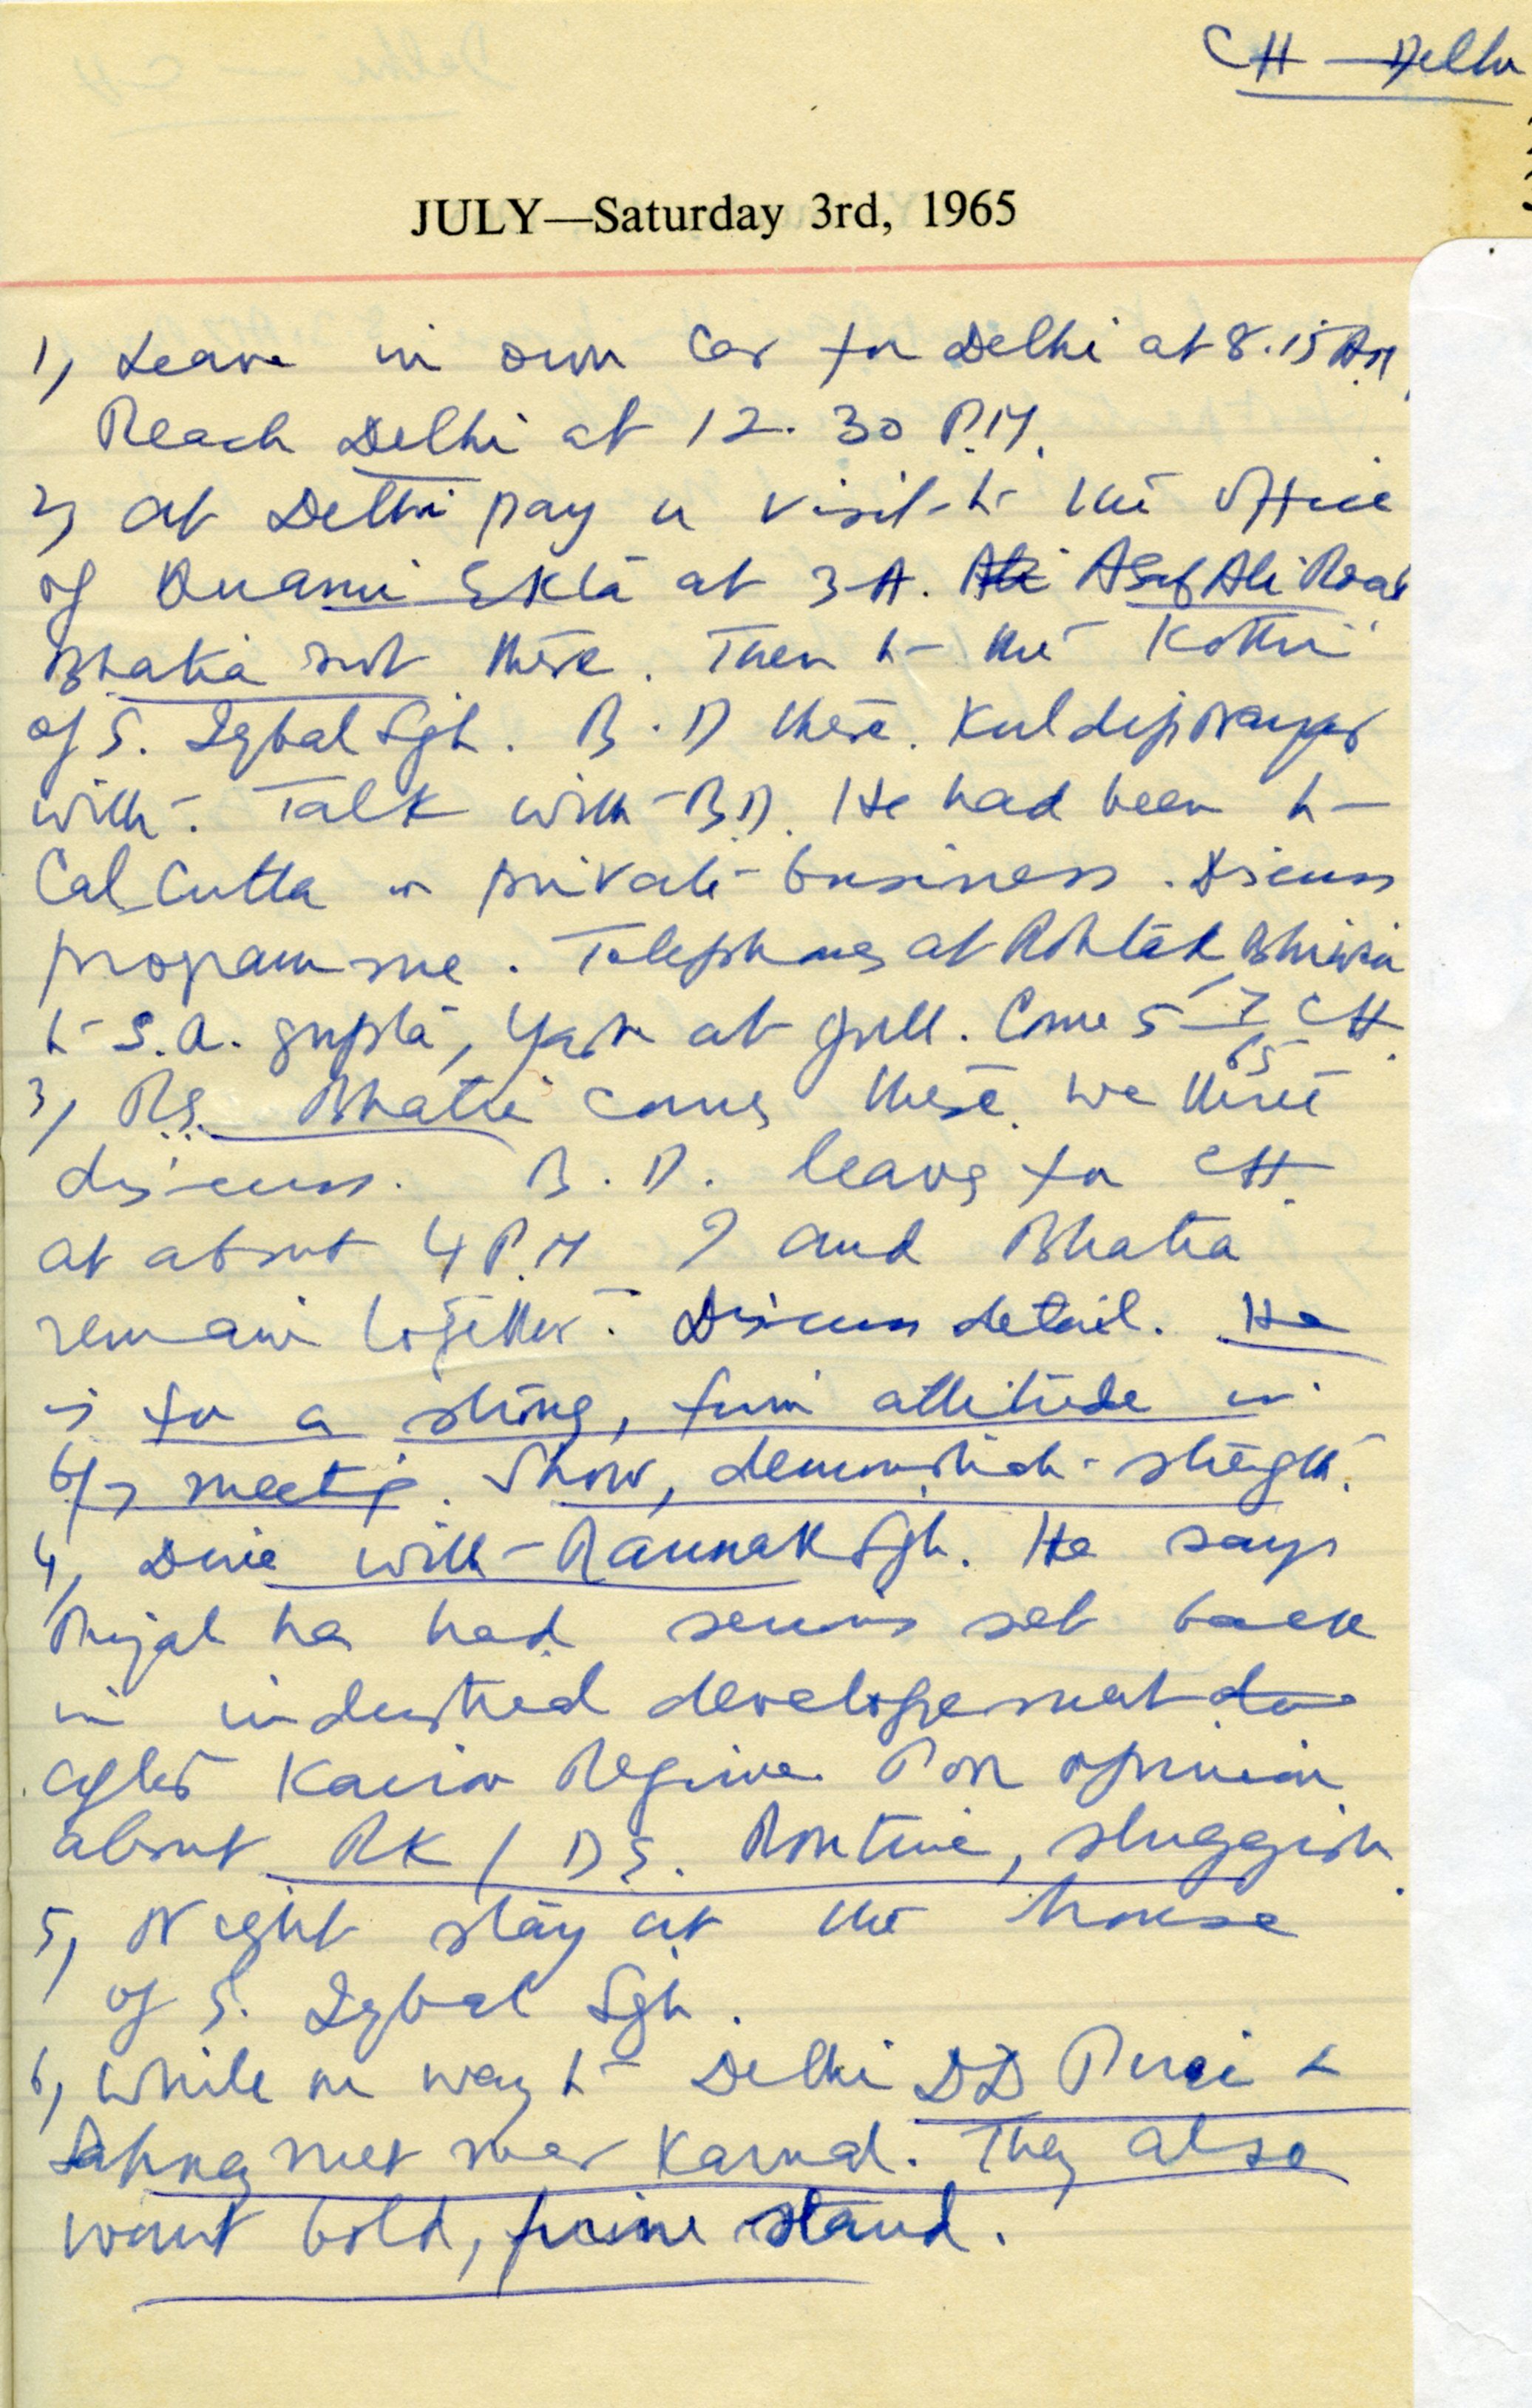 CH — Delhi
JULY—Saturday 3rd, 1965
1, Leave in own Car for Delhi at 8.15 A.M,
Reach Delhi at 12. 30 P.M.
2, At Delhi pay a visit to the office
of Quami Ekta at 3 A. Ali Asaf Ali Road
Bhatia not there. Then to the Kothi
of S. Iqbal Sgh. B. D there. Kuldip Nayyar
with. Talk with B.D. He had been to
Calcutta on private business. Discuss
programme. Telephones at Rohtak,
to S.A. Gupta, at Gill. Come 5-7-65 CH.
3, R.S. Bhatia comes there. We three
discuss. B. D. leaves for CH.
at about 4 P.M I and Bhatia
remain together. Discuss detail. He
is for a strong, firm attitude in
6/7 meeting. Show, demonstrate strength.
4, Dine with Raunak Sgh. He says
Punjab has had serious set back
in industrial developement due
after Kairon Regime. Poor opinion
about RK / DS. Routine, sluggish.
5, Night stay at the house
of S. Iqbal Sgh.
6, While on way to Delhi DD Puri &
met near Karnal. They also
want bold, firm stand.